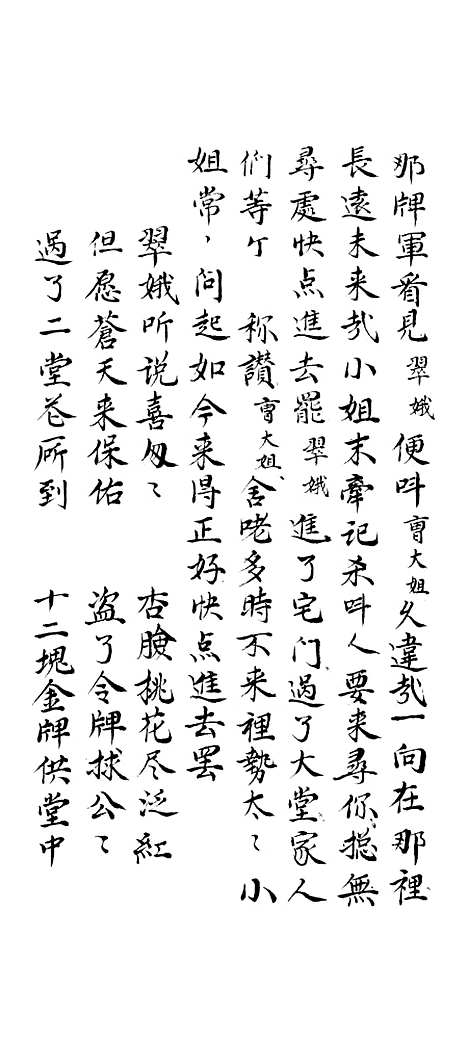 那牌軍看見翠娥便呌曺大姐久違哉一向在那裡
長遠未来哉小姐末牽记杀呌人要来尋你捴無
尋處快点進去罷翠娥進了宅门過了大堂家人
们等亇 称讃曺大姐舍咾多時不来裡勢太〻小
姐常〻问起如今来得正好快点進去罢
翠娥听说喜匆〻 杏臉挑花尽泛紅
但愿蒼天来保佑 盗了令牌捄公〻
過了二堂花所到 十二塊金牌供堂中